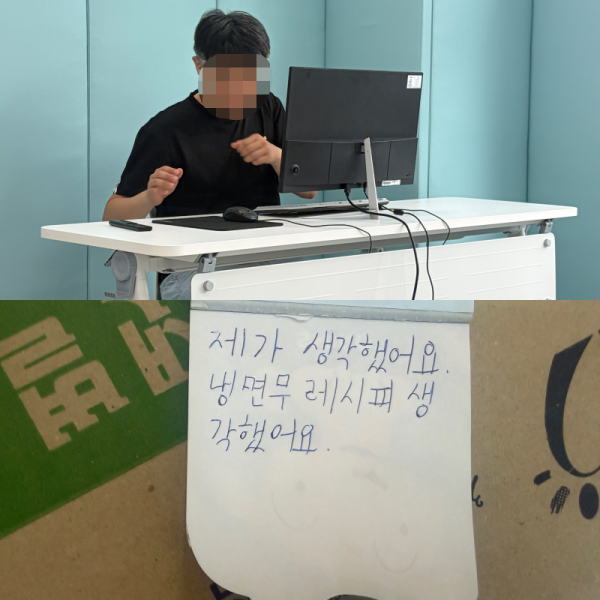 제가 생각했어요.
냉면무 레시피 생
각했어요.